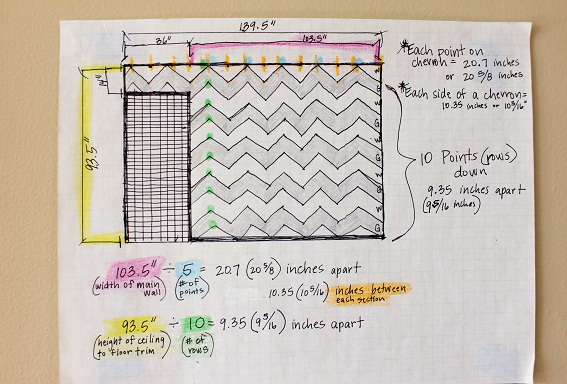 139.5"
36"
103.5"
14"
93.5"
W
G
W
G
W
G
W
G
W
G
*Each point on
chevron = 20.7 inches
or 20 5/8 inches
*Each side of a chevron =
10.35 inches or 10 5/16"
10 Points (rows)
down
9.35 inches apart
(9 5/16 inches)
103.5" ÷ 5 = 20.7 (20 5/8) inches apart
(width of main wall) (# of points)
10.35 (10 5/16) inches between each section
93.5" ÷ 10 = 9.35 (9 5/16) inches apart
(height of ceiling to floor trim) (# of rows)